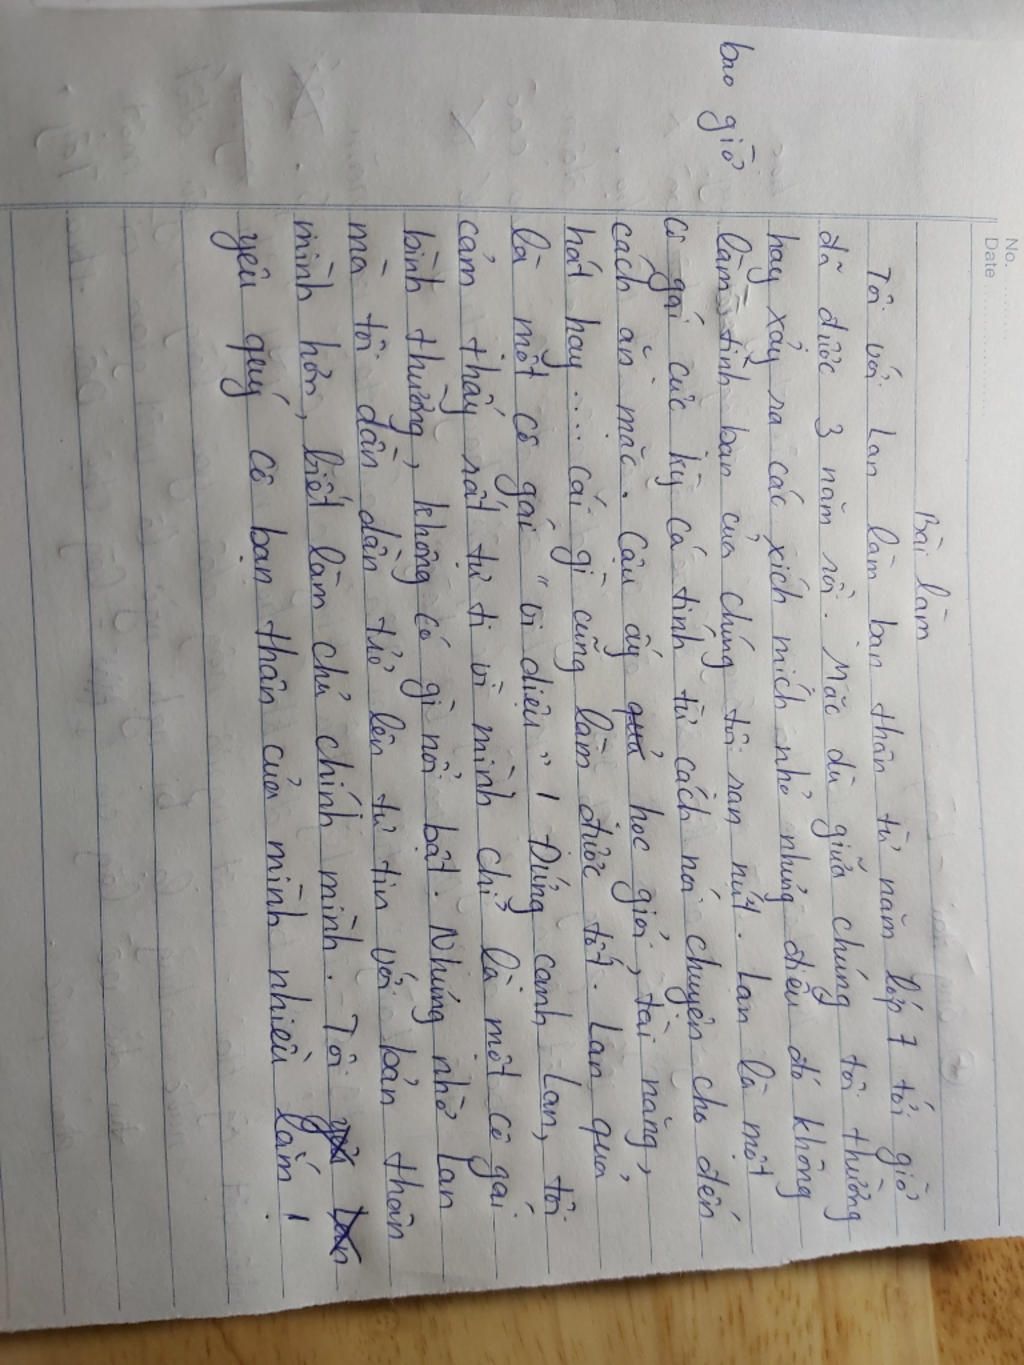 No.
Date
Bài làm
Tôi với Lan làm bạn thân từ năm lớp 7 tới giờ
đã được 3 năm rồi. Mặc dù giữa chúng tôi thường
hay xảy ra các xích mích nhỏ nhưng điều đó không
bao giờ làm tình bạn của chúng tôi rạn nứt. Lan là một
cô gái cực kỳ cá tính từ cách nói chuyện cho đến
cách ăn mặc. Cậu ấy học giỏi, tài năng,
hát hay.... cái gì cũng làm được tốt. Lan quả
là một cô gái "vi diệu"! Đứng cạnh Lan, tôi
cảm thấy rất tự ti vì mình chỉ là một cô gái
bình thường, không có gì nổi bật. Nhưng nhờ Lan
mà tôi dần dần trở lên tự tin với bản thân
mình hơn, biết làm chủ chính mình. Tôi
yêu quý cô bạn thân của mình nhiều lắm!